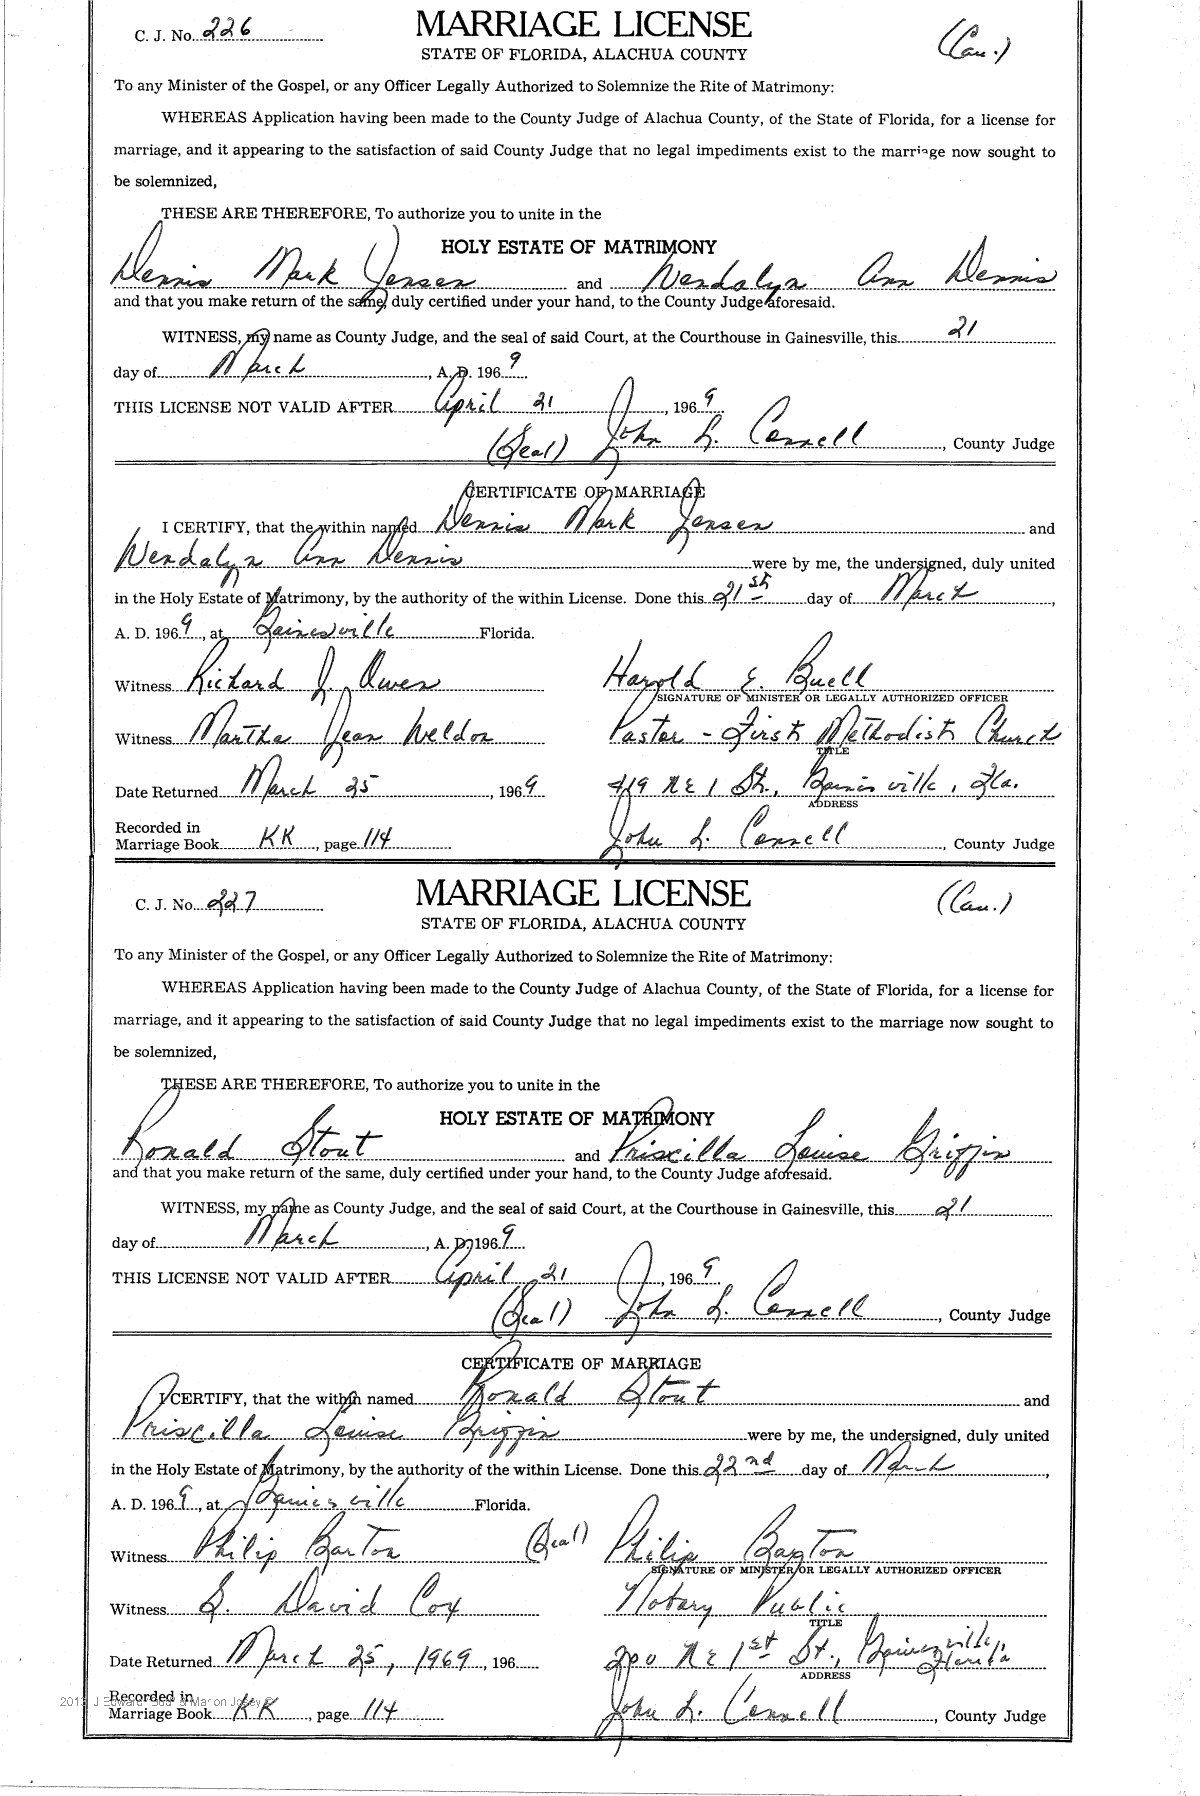 C. J. No. 226
MARRIAGE LICENSE
(Cau.)
STATE OF FLORIDA, ALACHUA COUNTY
To any Minister of the Gospel, or any Officer Legally Authorized to Solemnize the Rite of Matrimony:
WHEREAS Application having been made to the County Judge of Alachua County, of the State of Florida, for a license for
marriage, and it appearing to the satisfaction of said County Judge that no legal impediments exist to the marriage now sought to
be solemnized,
THESE ARE THEREFORE, To authorize you to unite in the
HOLY ESTATE OF MATRIMONY
Dennis Mark Jensen and Wendalyn Ann Dennis
and that you make return of the same, duly certified under your hand, to the County Judge aforesaid.
WITNESS, my name as County Judge, and the seal of said Court, at the Courthouse in Gainesville, this 21
day of March, A. D. 1969
THIS LICENSE NOT VALID AFTER April 21, 1969
(Seal) John L. Connell, County Judge
CERTIFICATE OF MARRIAGE
I CERTIFY, that the within named Dennis Mark Jensen and
Wendalyn Ann Dennis were by me, the undersigned, duly united
in the Holy Estate of Matrimony, by the authority of the within License. Done this 21st day of March,
A. D. 1969, at Gainesville Florida.
Witness Richard J. Owen Harold E. Buell
SIGNATURE OF MINISTER OR LEGALLY AUTHORIZED OFFICER
Witness Martha Jean Weldon Pastor - First Methodist Church
TITLE
Date Returned March 25, 1969 419 NE 1 St., Gainesville, Fla.
ADDRESS
Recorded in
Marriage Book KK, page 114 John L. Connell, County Judge
C. J. No. 227
MARRIAGE LICENSE
(Cau.)
STATE OF FLORIDA, ALACHUA COUNTY
To any Minister of the Gospel, or any Officer Legally Authorized to Solemnize the Rite of Matrimony:
WHEREAS Application having been made to the County Judge of Alachua County, of the State of Florida, for a license for
marriage, and it appearing to the satisfaction of said County Judge that no legal impediments exist to the marriage now sought to
be solemnized,
THESE ARE THEREFORE, To authorize you to unite in the
HOLY ESTATE OF MATRIMONY
Ronald Stout and Priscilla Louise Griffin
and that you make return of the same, duly certified under your hand, to the County Judge aforesaid.
WITNESS, my name as County Judge, and the seal of said Court, at the Courthouse in Gainesville, this 21
day of March, A. D. 1969
THIS LICENSE NOT VALID AFTER April 21, 1969
(Seal) John L. Connell, County Judge
CERTIFICATE OF MARRIAGE
I CERTIFY, that the within named Ronald Stout and
Priscilla Louise Griffin were by me, the undersigned, duly united
in the Holy Estate of Matrimony, by the authority of the within License. Done this 22nd day of March,
A. D. 1969, at Gainesville Florida.
Witness Philip Barton (Seal) Philip Barton
SIGNATURE OF MINISTER OR LEGALLY AUTHORIZED OFFICER
Witness S. David Cox Notary Public
TITLE
Date Returned March 25, 1969, 196 200 NE 1st St., Gainesville, Florida
ADDRESS
Recorded in
Marriage Book KK, page 114 John L. Connell, County Judge